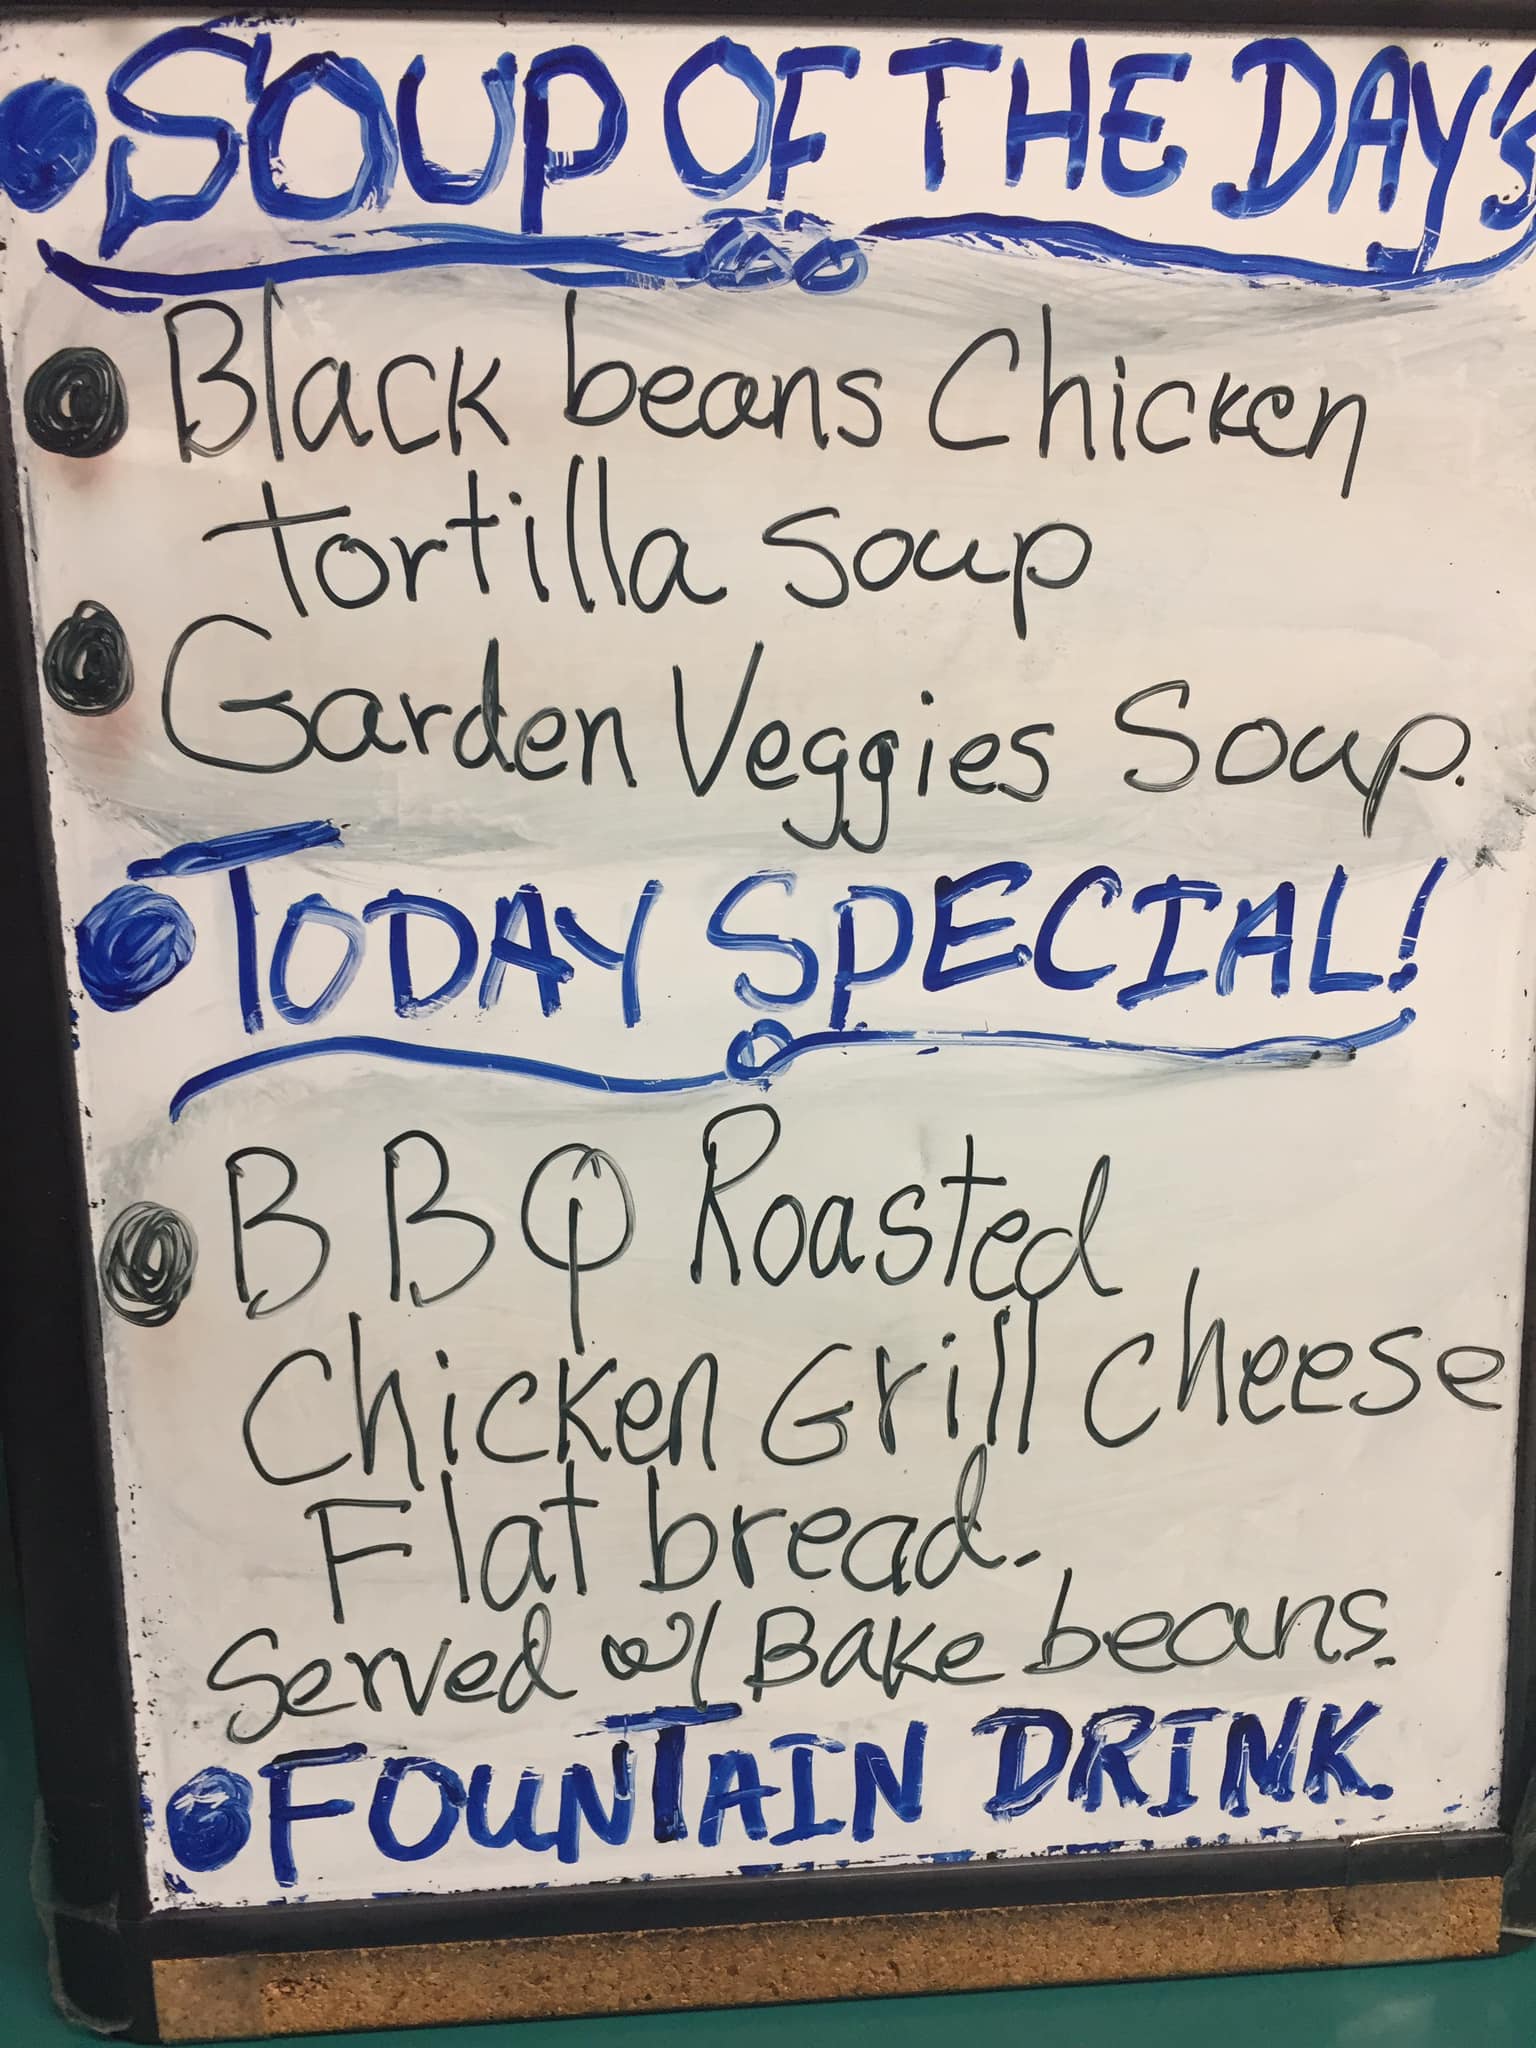 SOUP OF THE DAY!
Black beans Chicken
tortilla soup
Garden Veggies Soup.
TODAY SPECIAL!
BBQ Roasted
Chicken Grill Cheese
Flat bread.
Served w/ Bake beans.
FOUNTAIN DRINK.